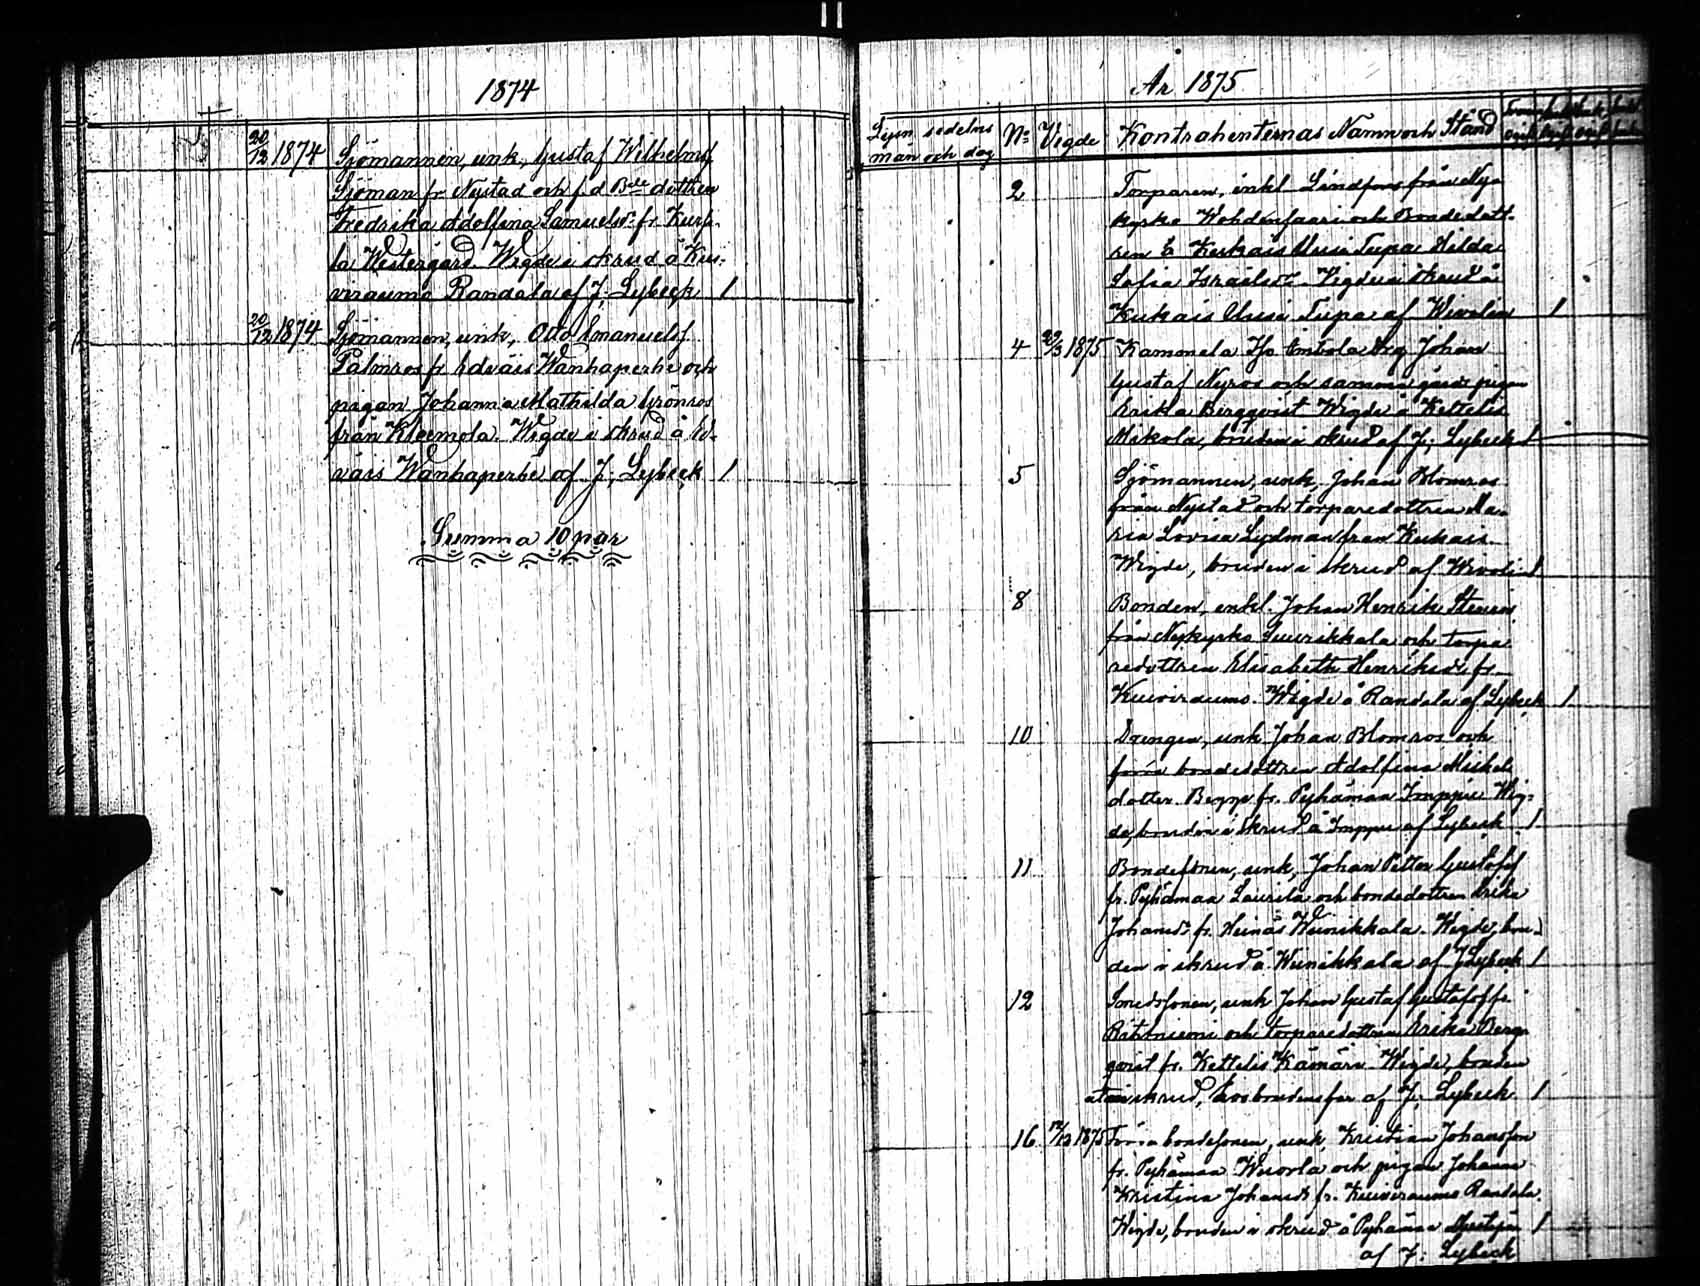 1874
20/12 1874 Sjömannen, unk., Gustaf Wilhelmsf.
Sjöman fr. Nystad och f.d. Bde dottren
Fredrika Adolfina Samuelsdr fr. Kurja-
la Westergård. Wigde i skrud å Kui-
viraumo Randala af J. Lybeck 1
20/12 1874 Sjömannen, unk., Otto Emanuelsf.
Palmros fr. Edväis Wanhaperhe och
pigan Johanna Mathilda Grönros
från Kleemola. Wigde i skrud å Ed-
väis Wanhaperhe af J. Lybeck 1
Summa 10 par
År 1875
Lysn. sedelns mån och dag No Vigde Kontrahenternas Namn och Stånd
2 Torparen, enkl. Lindfors från Ny-
kyrko Wohdensaari och Bondedott-
ren Kukais Uusi Tupa Hilda
Sofia Israelsdr. Vigde i skrud å
Kukais Uusi Tupa af Wivolin 1
4 29/3 1875 Kammela Iso Antola drg Johan
Gustaf Nyros och samma gårds pigan
Erika Bergqvist Wigde å Kettelis
Mikola, bruden i skrud af J. Lybeck 1
5 Sjömannen, unk, Johan Blomros
från Nystad och torparedottren Ma-
ria Lovisa Lydman från Kukais.
Wigde, bruden i skrud af Wivolin 1
8 Bonden, enkl. Johan Henrik
från Nykyrko Suurikkala och torpa
redottren Elisabeth Henriksdr fr.
Kuiviraumo. Wigde å Randala af Lybeck 1
10 Drengen, unk. Johan Blomros och
förra bondedottren Adolfina Mickels
dotter. Begge fr. Pyhämaa Imppu Wig-
de, bruden i skrud å Imppu af Lybeck 1
11 Bondesonen, unk, Johan Petter Gustafsf
fr. Pyhämaa Laurila och bondedottren Erika
Johansdr fr. Heinäs Weinikkala. Wigde, bru-
den i skrud å Weinikkala af J. Lybeck 1
12 Smedssonen, unk Johan Gustaf Gustafsf fr.
Rihtniemi och torparedottren Erika Berg-
qvist fr. Kettelis Kämäri Wigde, bruden
utan skrud, hos brudens far af J. Lybeck 1
16 12/12 1875 Förra bondesonen, unk, Kristian Johansson
fr. Pyhämaa Wuorla och pigan Johanna
Kristina Johansdr fr. Kuiviraumo Randala.
Wigde, bruden i skrud å Pyhämaa 1
af J. Lybeck